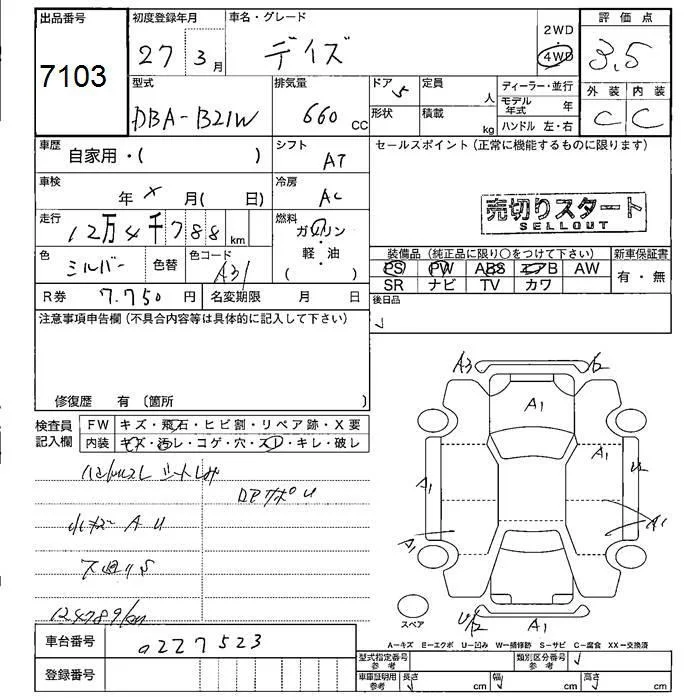 出品番号
7103
初度登録年月
27 3月
車名・グレード
デイズ
2WD
4WD
評価点
3.5
型式
DBA-B21W
排気量
660 CC
ドア
5
形状
定員
人
積載
kg
ディーラー・並行
モデル年式 年
ハンドル 左・右
外装 内装
C C
車歴
自家用・( )
シフト
AT
セールスポイント(正常に機能するものに限ります)
車検
年 × 月( 日)
冷房
AC
売切りスタート
SELLOUT
走行
12万4千788km
燃料
ガソリン
・
軽・油
( )
色
シルバー
色替
色コード
A31
装備品(純正品に限り○をつけて下さい)
PS PW ABS エアB AW
SR ナビ TV カワ
新車保証書
有・無
R券 7.750円
名変期限 月 日
後日品
注意事項申告欄(不具合内容等は具体的に記入して下さい)
修復歴 有〔箇所 〕
検査員記入欄
FW キズ・飛石・ヒビ割・リペア跡・X要
内装 キズ・汚レ・コゲ・穴・スレ・キレ・破レ
A U
124789km
A3
A1
A1
A1
U
A1
A1
A1
スペア
A-キズ E-エクボ U-凹み W-補修跡 S-サビ C-腐食 XX-交換済
車台番号
0227523
登録番号
型式指定番号
参考
類別区分番号
参考
車庫証明用
参考
長さ cm 幅 cm 高さ cm